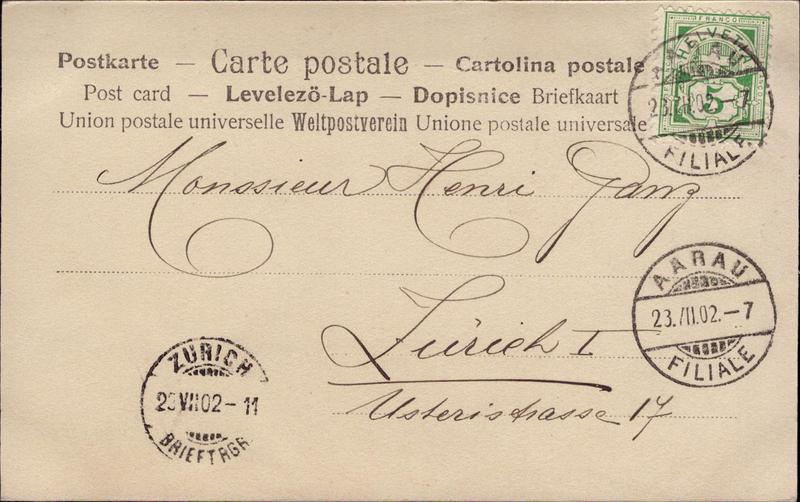 FRANCO
HELVETIA
5
Postkarte — Carte postale — Cartolina postale
Post card — Levelező-Lap — Dopisnice Briefkaart
Union postale universelle Weltpostverein Unione postale universale
AARAU
23.VII.02.-7
FILIALE
Monssieur Henri Ganz
AARAU
23.VII.02.-7
FILIALE
Zürich I
Usteristrasse 17
ZÜRICH
23 VII 02-11
BRIEFTRGR